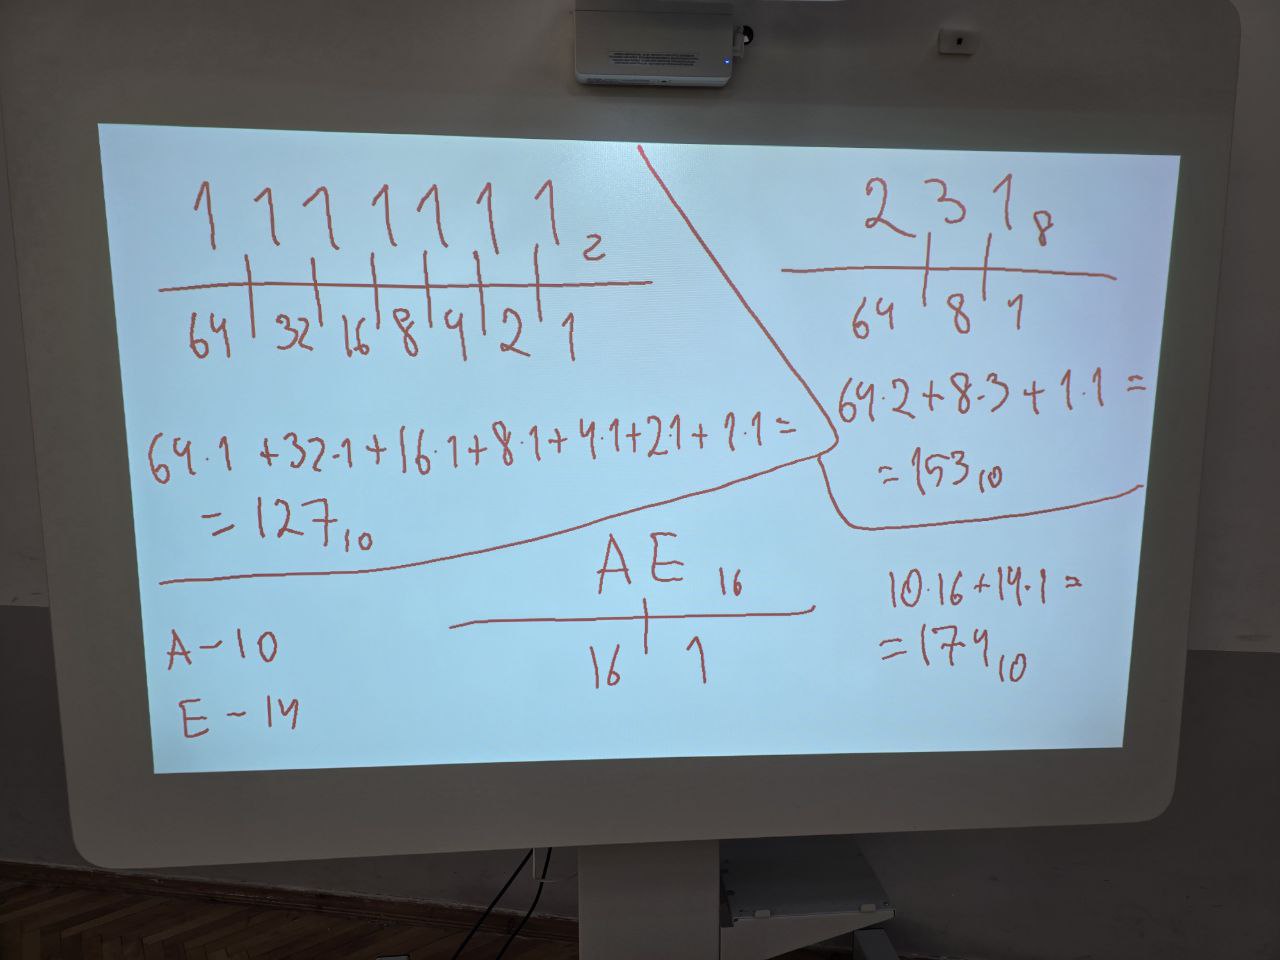 1 1 1 1 1 1 1 2
64 32 16 8 4 2 1
64·1 +32·1+16·1+8·1+4·1+2·1+1·1=
=127 10
2 3 1 8
64 8 1
64·2+8·3+1·1=
=153 10
A E 16
16 1
A-10
E-14
10·16+14·1=
=174 10